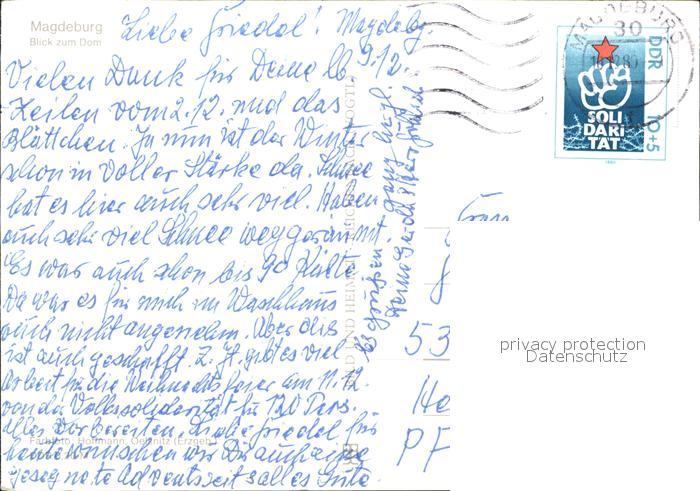 Magdeburg
Blick zum Dom
Liebe Friedel! Magdebg.
9.12.
Vielen Dank für Deine lb.
Zeilen vom 2.12. und das
Blättchen. Ja nun ist der Winter
schon in voller Stärke da. Schnee
hat es hier auch sehr viel. Haben
auch sehr viel Schnee weggeräumt.
Es war auch schon bis 9° Kälte
Da war es für mich im Waschhaus
auch nicht angenehm. Aber dies
ist auch geschafft. Z. Zt. gibt es viel
Arbeit für die Weihnachtsfeier am 11.12.
von der Volkssolidarität für 120 Pers.
alles vorbereiten. Liebe Friedel für
heute wünschen wir Dir
gesegnete Adventszeit alles Gute
Es grüßen ganz herzl.
Deine Gerda
Farbfoto: Hoffmann, Oelsnitz (Erzgeb.)
BILD UND HEIMAT REICHENBACH (VOGTL)
MAGDEBURG
30
DDR
10+5
SOLI
DARI
TÄT
Frau
53
PF
privacy protection
Datenschutz